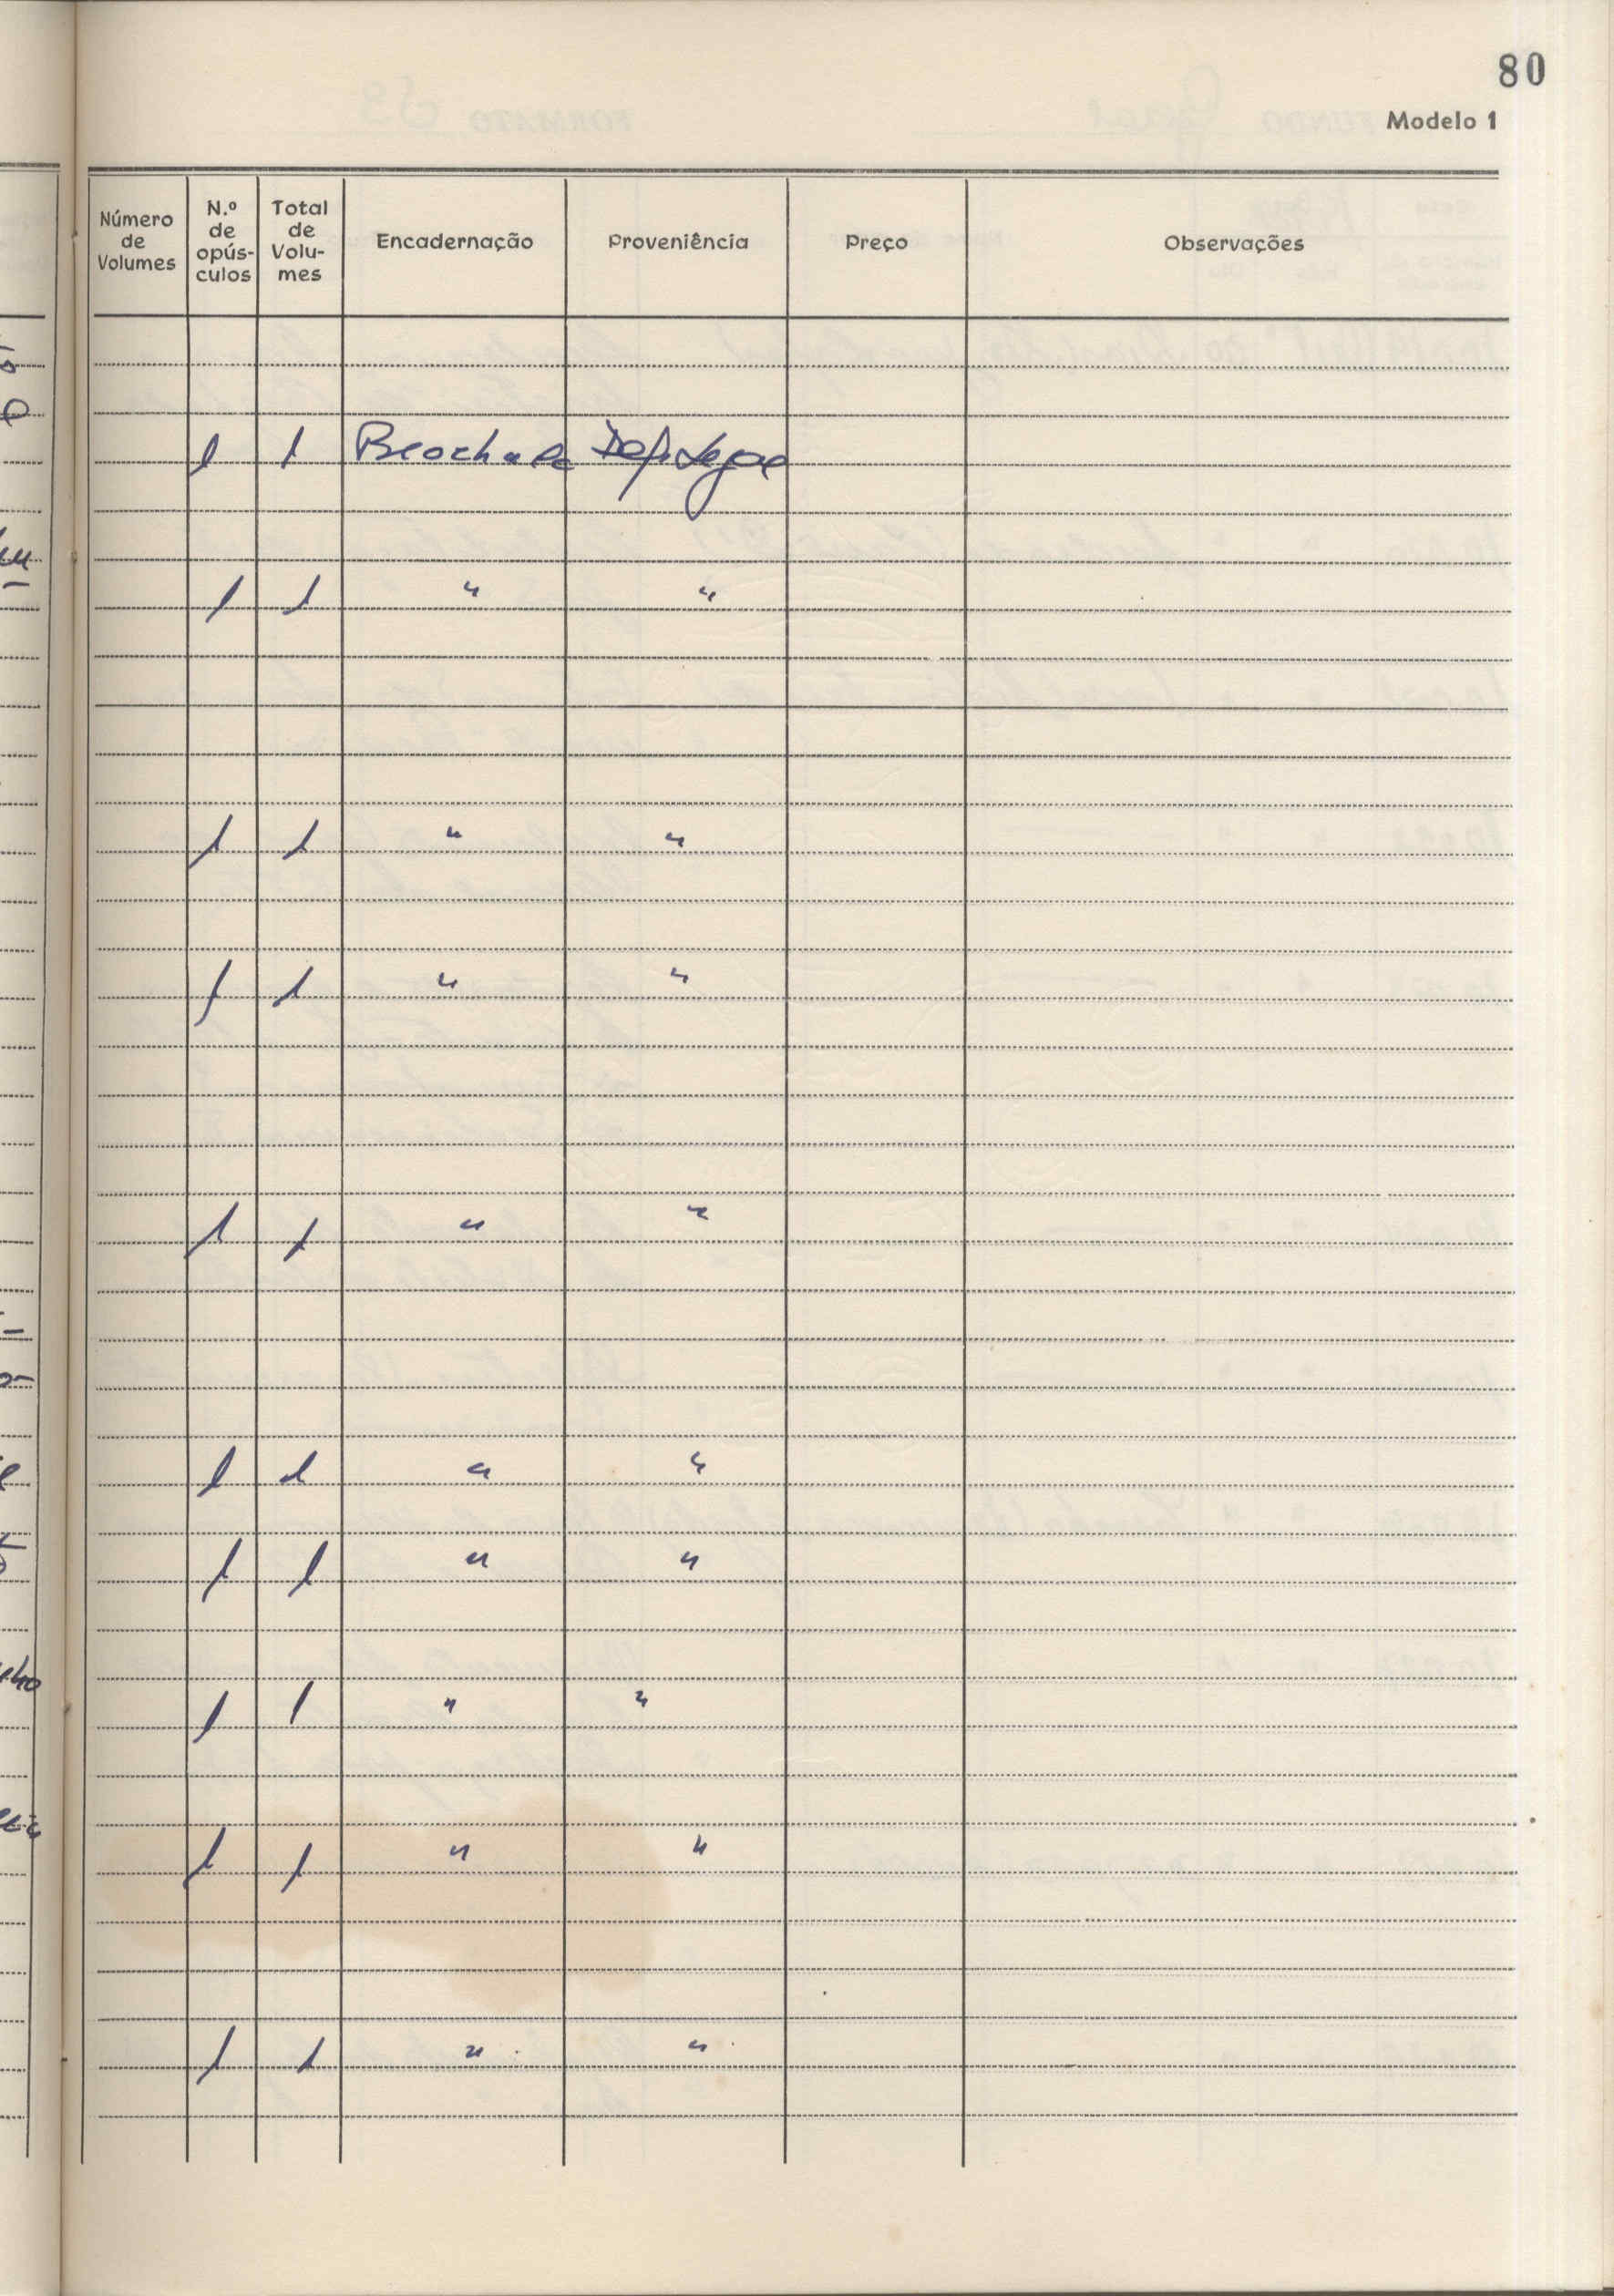 80
Modelo 1
Número de Volumes | N.º de opús-culos | Total de Volu-mes | Encadernação | Proveniência | Preço | Observações
1 1 Brochado Dep. Legal
1 1 " "
1 1 " "
1 1 " "
1 1 " "
1 1 " "
1 1 " "
1 1 " "
1 1 " "
1 1 " "